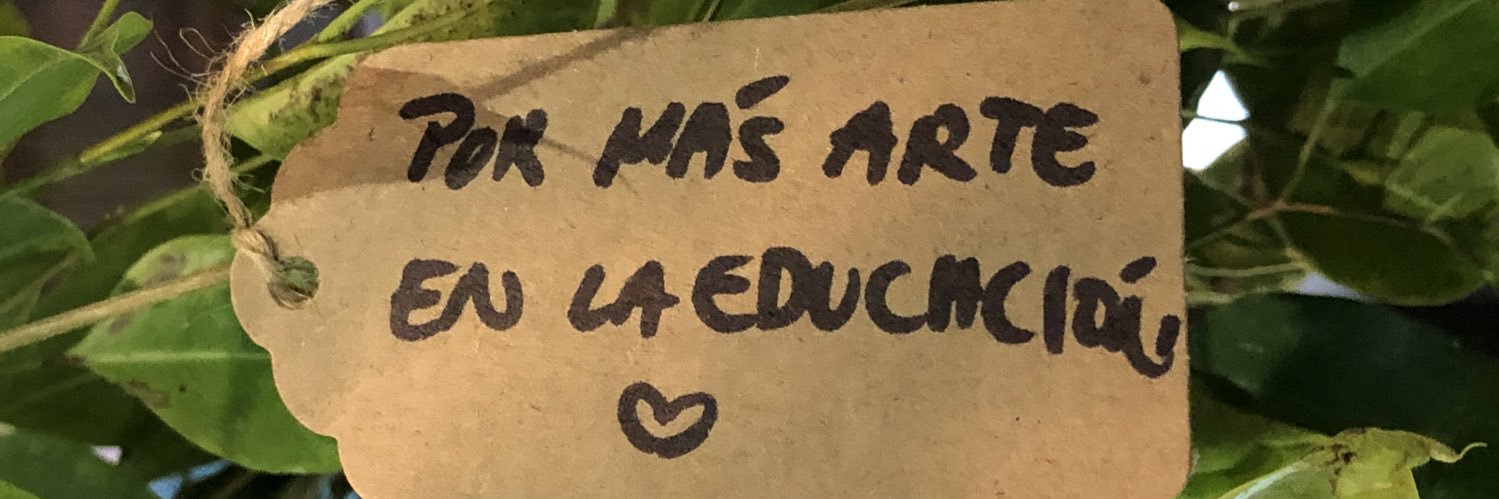 POR MÁS ARTE
EN LA EDUCACIÓN